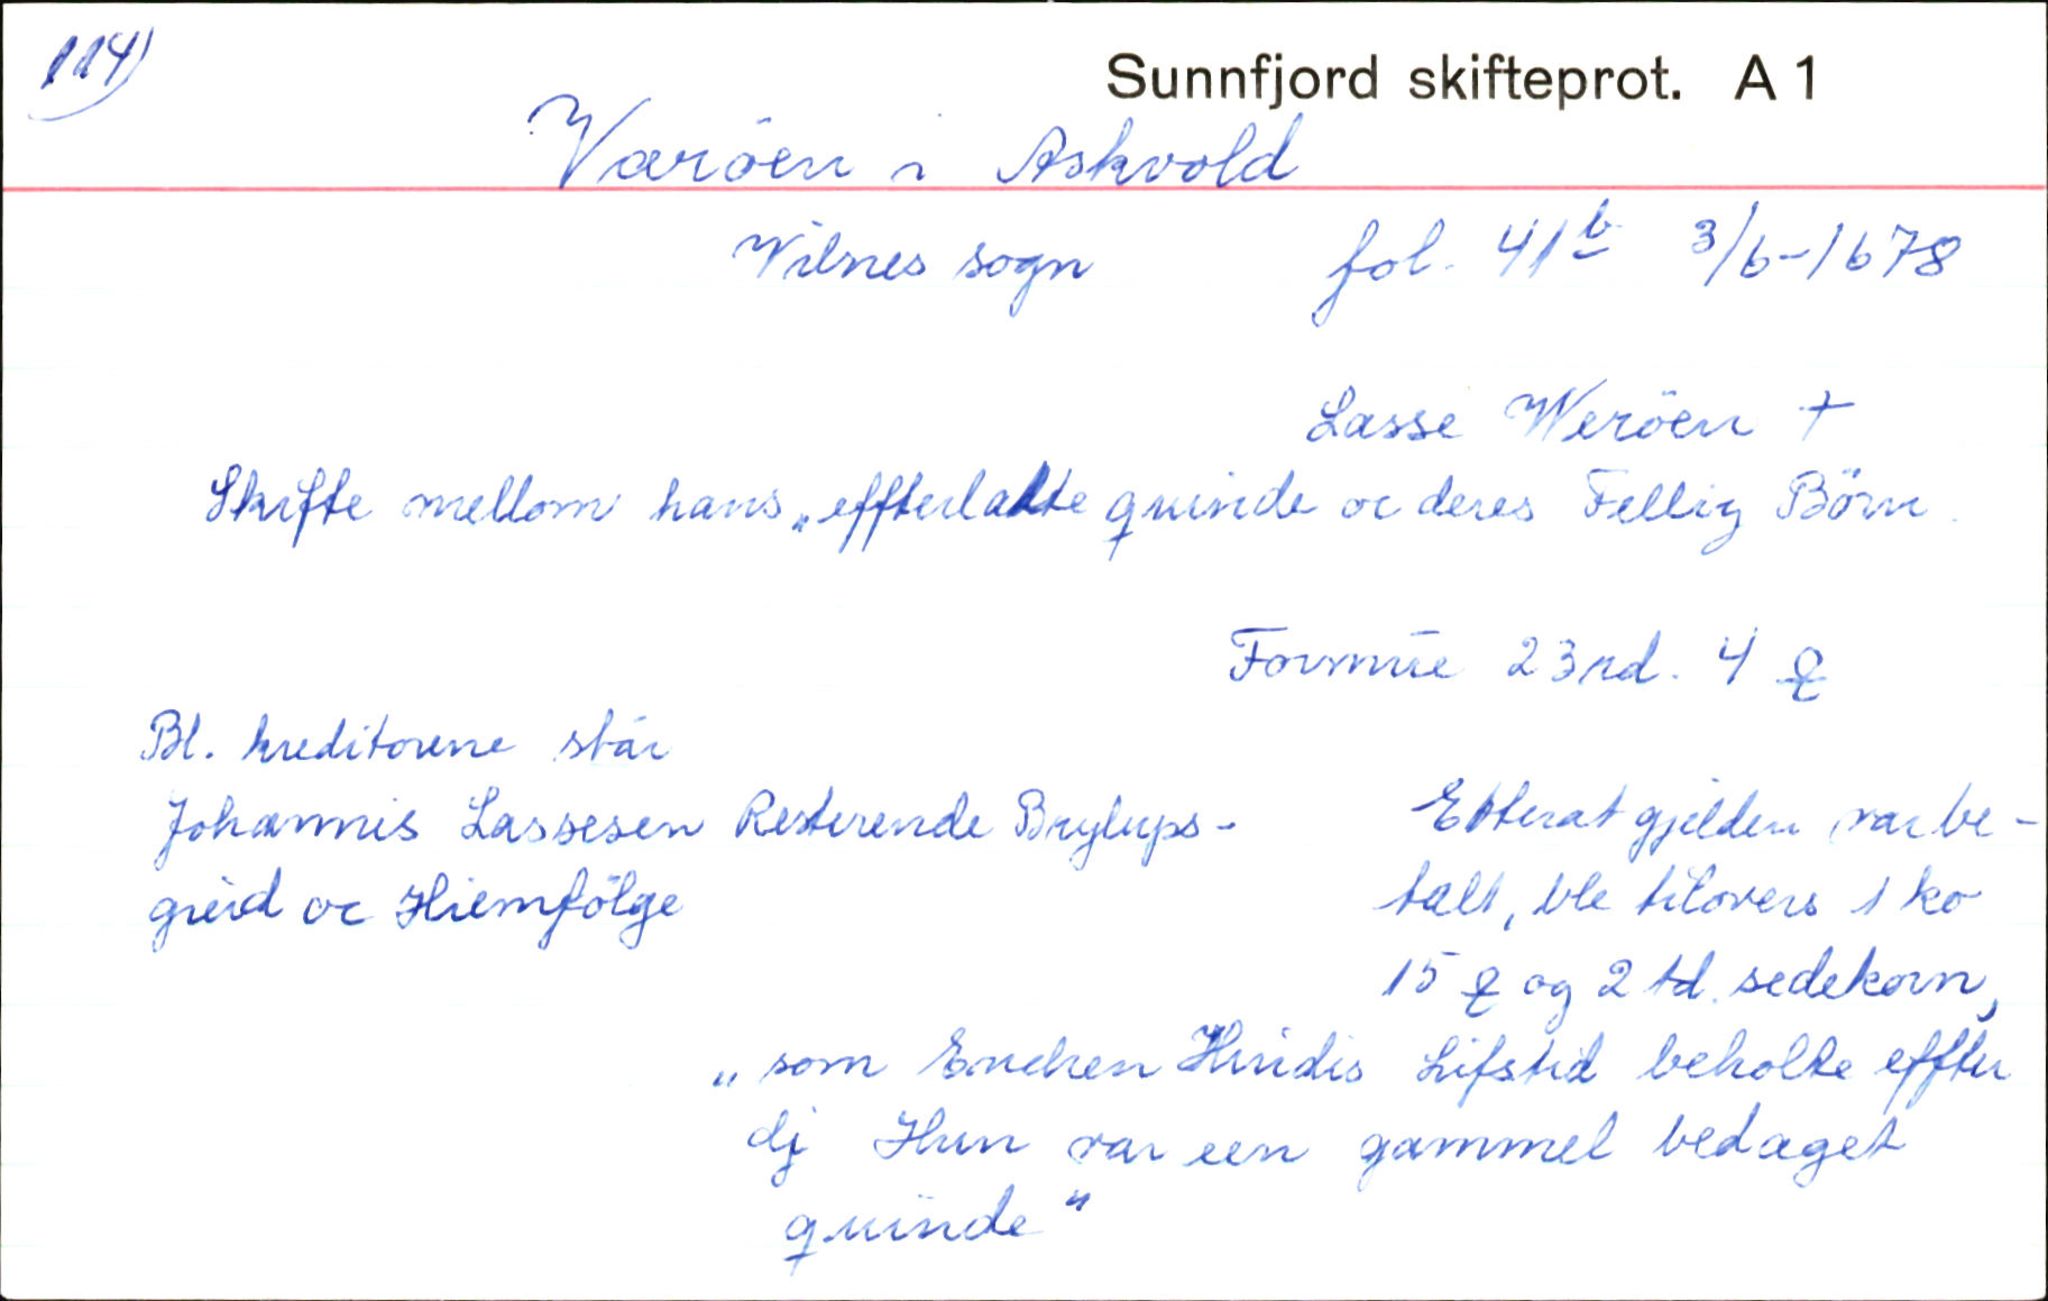 114)
Sunnfjord skifteprot. A 1
Væröen i Askvold
Vilnes sogn fol. 41b 3/6-1678
Lasse Weröen †
Skifte mellom hans „effterlatte quinde oc deres Fellig Börn.
Formue 23 rd. 4 ꝥ
Bl. kreditorene står
Johannis Lassesen Resterende Brylups-
gierd oc Hiemfölge
Etterat gjelden var be-
talt, ble tilovers 1 ko
15 ꝥ og 2 td. sedekorn,
„som Enchen Hindis Lifstid beholte effter
dj Hun var een gammel bedaget
quinde"